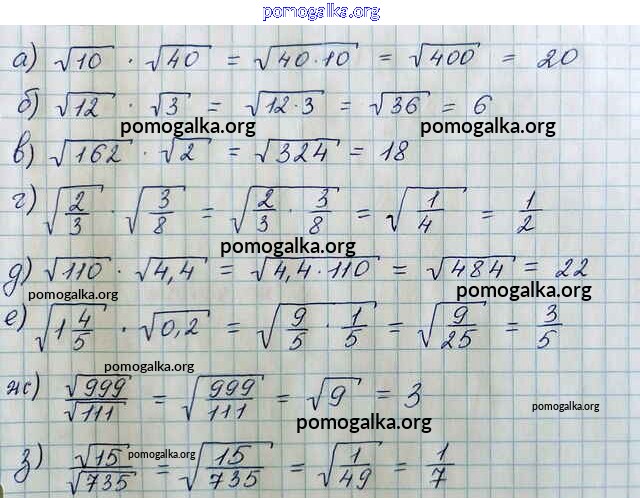 pomogalka.org
а) √10 · √40 = √40·10 = √400 = 20
б) √12 · √3 = √12·3 = √36 = 6
pomogalka.org pomogalka.org
в) √162 · √2 = √324 = 18
г) √2/3 · √3/8 = √2/3 · 3/8 = √1/4 = 1/2
pomogalka.org
д) √110 · √4,4 = √4,4·110 = √484 = 22
pomogalka.org pomogalka.org
е) √1 4/5 · √0,2 = √9/5 · 1/5 = √9/25 = 3/5
pomogalka.org
ж) √999/√111 = √999/111 = √9 = 3
pomogalka.org pomogalka.org
з) √15/√735 = √15/735 = √1/49 = 1/7
pomogalka.org